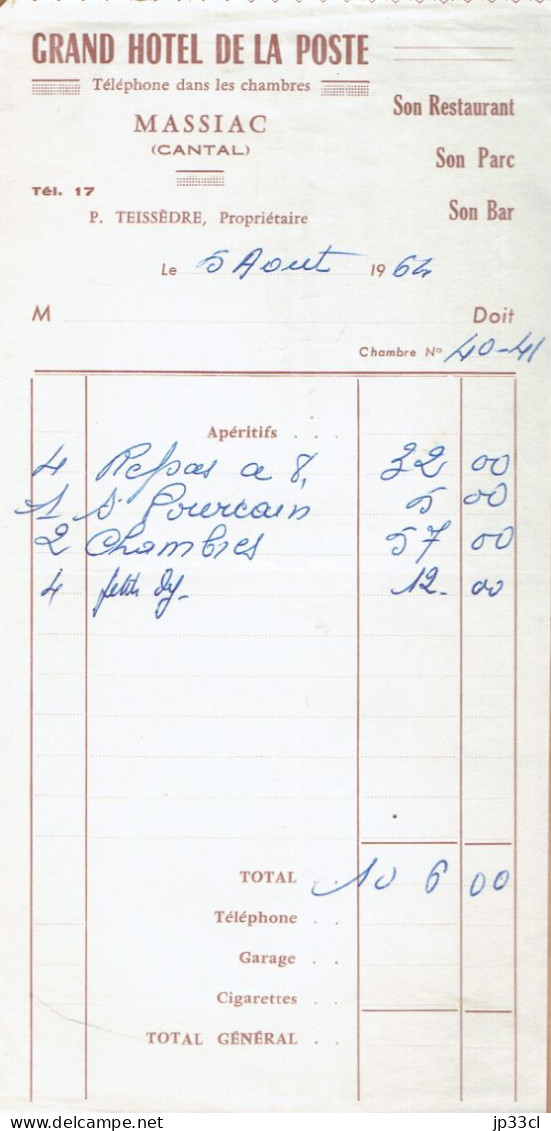 GRAND HOTEL DE LA POSTE
Téléphone dans les chambres
MASSIAC
(CANTAL)
Son Restaurant
Son Parc
Son Bar
Tél. 17
P. TEISSÈDRE, Propriétaire
Le 5 Aout 1964
M Doit
Chambre N° 40-41
Apéritifs . . .
4 Repas a 8, 32 00
1 St Pourcain 5 00
2 Chambres 57 00
4 petits dej. 12. 00
TOTAL . . 106 00
Téléphone . .
Garage . .
Cigarettes . .
TOTAL GÉNÉRAL . .
www.delcampe.net
jp33cl